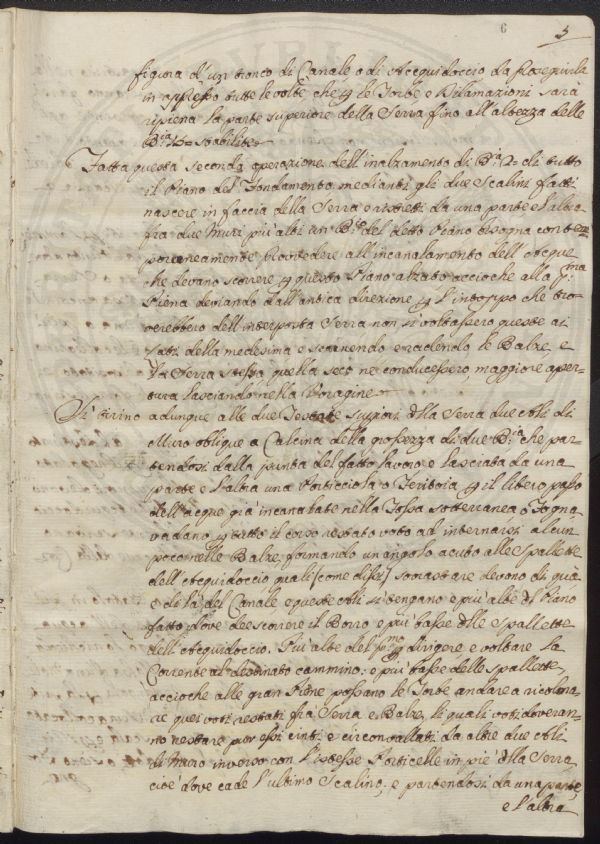 6
5
figura d'un tronco di Canale o di Acquidoccio da proseguirla
in appresso tutte le volte che p le Torbe, e Dilamazioni sarà
ripiena la parte superiore della Serra fino all'altezza delle
B.ia stabilite
Fatta questa seconda operazione dell'inalzamento di B.ia 2 di tutto
il Piano del Fondamento medianti gli due Scalini fatti
nascere in faccia della Serra e ristretti da una parte e l'altra
fra due Muri più alti un B.io del detto Piano bisogna contem
poraneamente provvedere all'incanalamento dell'Acque
che devano scorrere p questo Piano alzato accioche alla p.ma
Piena deviando dall'antica direzione p l'intoppo che tro-
verebbero dell'interposta Serra non si voltassero queste ai
lati della medesima e scarnendo e radendo le Balze, e
la Serra stessa quella seco ne conducessero, maggiore aper-
tura lasciando nella Voragine
Si tirino adunque alle due Testate Superiori d̃lla Serra due Ali di
Muro oblique a Calcina della grossezza di due B.ia che par-
tendosi dalla punta del fatto lavoro e lasciata da una
parte e l'altra una Porticciola o Feritoia p il libero passo
dell'acque già incanalate nella Fossa sotterranea o Fogna
vadano p tutto il corso restato voto ad internarsi alcun
poco nelle Balze, formando un angolo acuto alle Spallette
dell'Acquidoccio quali [come dissi] sovrastare devono di quà
e di là del Canale e queste Ali si tengano e più alte d̃l Piano
fatto dove de scorrere il Borro e più basse d̃lle Spallette
dell'Acquidoccio. Più alte del p.mo p dirigere e voltare la
Corrente al destinato cammino: e più basse delle Spallette,
accioche alle gran Piene possano le Torbe andare a ricolma-
re quei voti restati fra Serra e Balze, li quali voti dovran-
no restare pur essi cinti e circonvallati da altre due Ali
di Muro inverso con l'istesse Porticelle in piè d̃lla Serra
cioè dove cade l'ultimo Scalino; e partendosi da una parte,
e l'altra